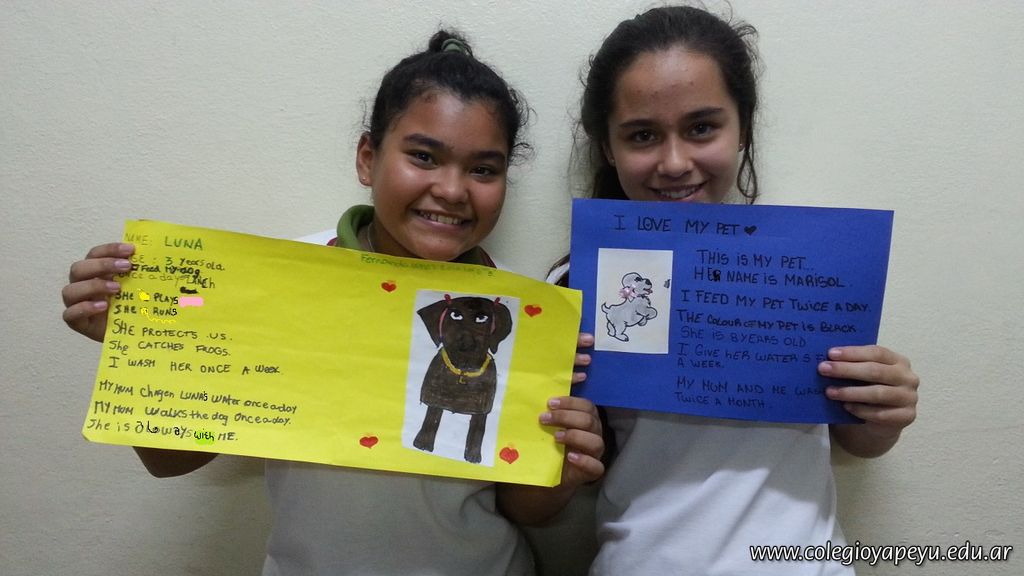 NAME: LUNA
3 years old.
Feed My dog
once a day
SHE PLAYS
SHE RUNS
SHE PROTECTS US.
She CATCHES FROGS.
I WASH HER ONCE A WEEK.
MY MUM Chagen LUNAS Water once a day
MY MUM WALKS the dog once a day.
She is always with ME.
I LOVE MY PET
THIS IS MY PET...
HER NAME IS MARISOL.
I FEED MY PET TWICE A DAY.
THE COLOUR OF MY PET IS BLACK.
SHE IS 8 YEARS OLD
I GIVE HER WATER 5
A WEEK.
MY MUM AND ME WASH
TWICE A MONTH.
www.colegioyapeyu.edu.ar